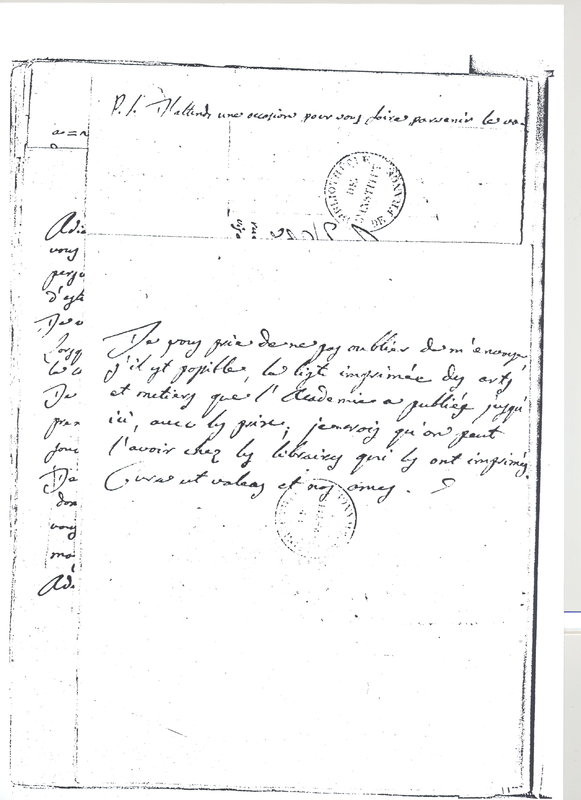 P. S. J'attends une occasion pour vous faire parvenir le
BIBLIOTHÈQUE DE L'INSTITUT DE FRANCE
Adi
vous
perso
d'est
De
Lorsq
la
De
pren
De
don
vous
mo
Adi
Je vous prie de ne pas oublier de m'envoyer
s'il est possible, la liste imprimée des arts
et metiers que l'Academie a publiés jusqu'
ici, avec les prix; je crois qu'on peut
l'avoir chez les libraires qui les ont imprimés.
Cura ut valeas et nos ames.